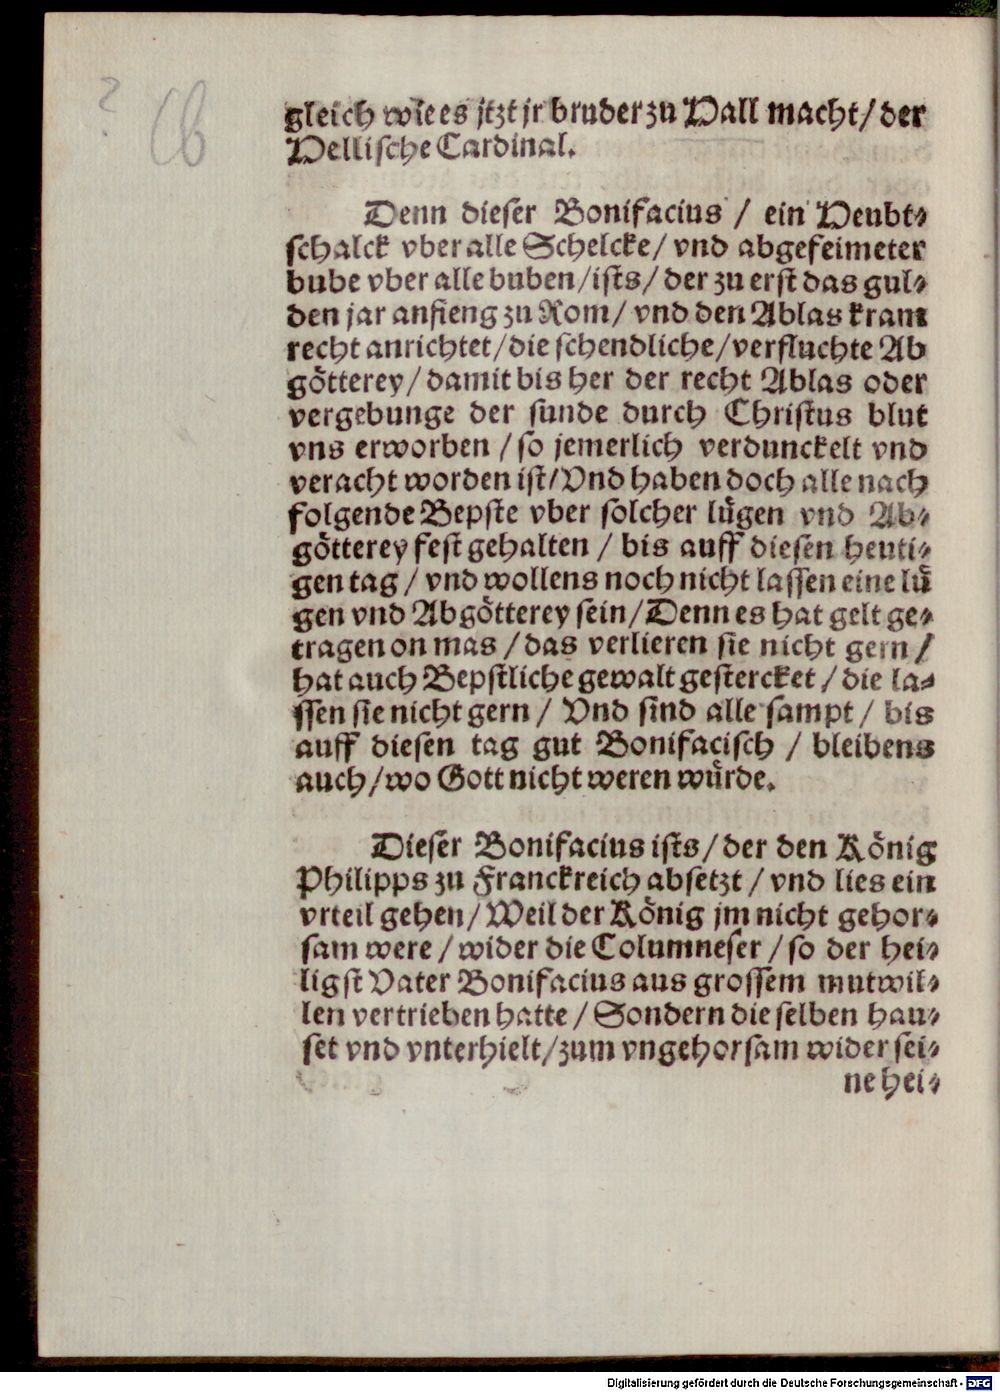 gleich wie es jtzt jr bruder zu Vall macht/ der
Vellische Cardinal.
Denn dieser Bonifacius / ein Heubt⸗
schalck vber alle Schelcke/ vnd abgefeimeter
bube vber alle buben/ists/ der zu erst das gul⸗
den jar anfieng zu Rom/ vnd den Ablas kram
recht anrichtet/die schendliche/verfluchte Ab
götterey/ damit bis her der recht Ablas oder
vergebunge der sunde durch Christus blut
vns erworben /so jemerlich verdunckelt vnd
veracht worden ist/Vnd haben doch alle nach
folgende Bepste vber solcher lügen vnd Ab⸗
götterey fest gehalten / bis auff diesen heuti⸗
gen tag / vnd wollens noch nicht lassen eine lü
gen vnd Abgötterey sein/Denn es hat gelt ge⸗
tragen on mas /das verlieren sie nicht gern /
hat auch Bepstliche gewalt gestercket / die la⸗
ssen sie nicht gern / Vnd sind alle sampt / bis
auff diesen tag gut Bonifacisch / bleibens
auch/wo Gott nicht weren würde.
Dieser Bonifacius ists/der den König
Philipps zu Franckreich absetzt / vnd lies ein
vrteil gehen/ Weil der König jm nicht gehor⸗
sam were / wider die Columneser /so der hei⸗
ligst Vater Bonifacius aus grossem mutwil⸗
len vertrieben hatte / Sondern die selben hau⸗
set vnd vnterhielt/zum vngehorsam wider sei⸗
ne hei⸗
Digitalisierung gefördert durch die Deutsche Forschungsgemeinschaft - DFG